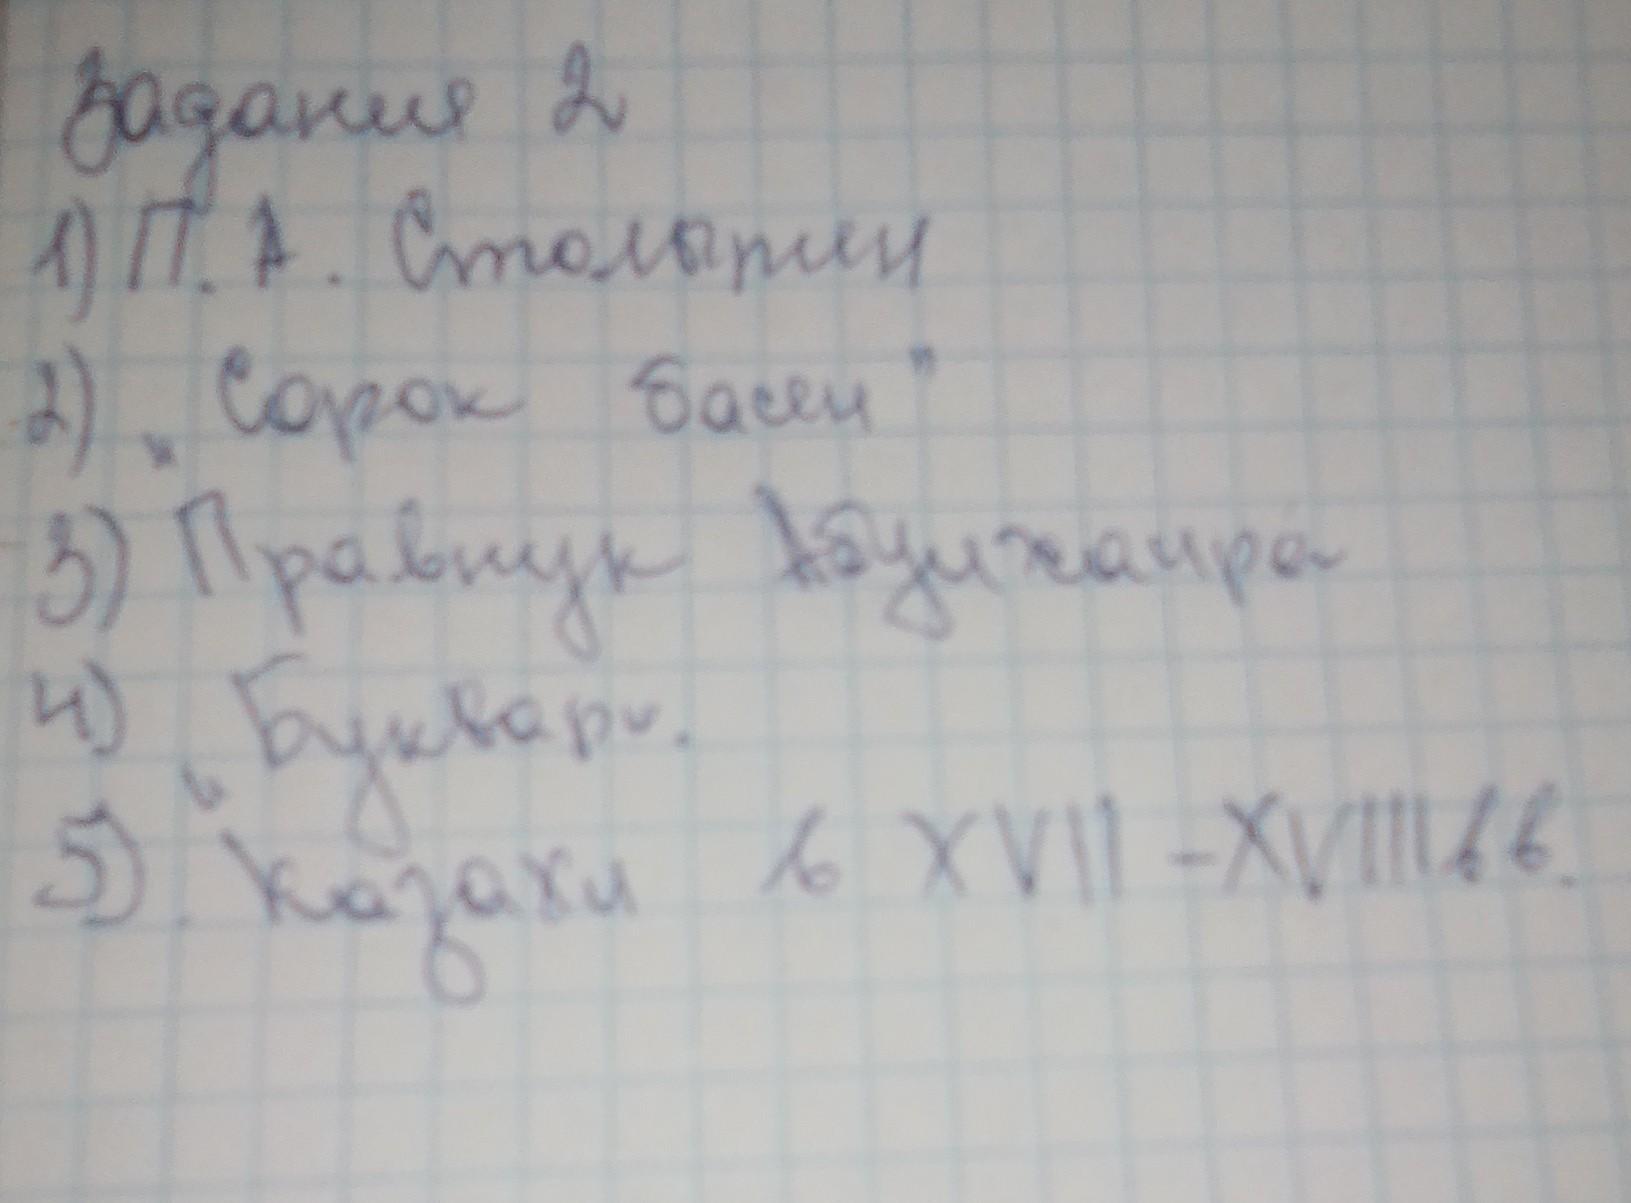 Задания 2
1) П. А. Столыпин
2) „Сорок басен"
3) Правнук Абулхаира
4) „Букварь.
5). Казахи в XVII - XVIII вв.